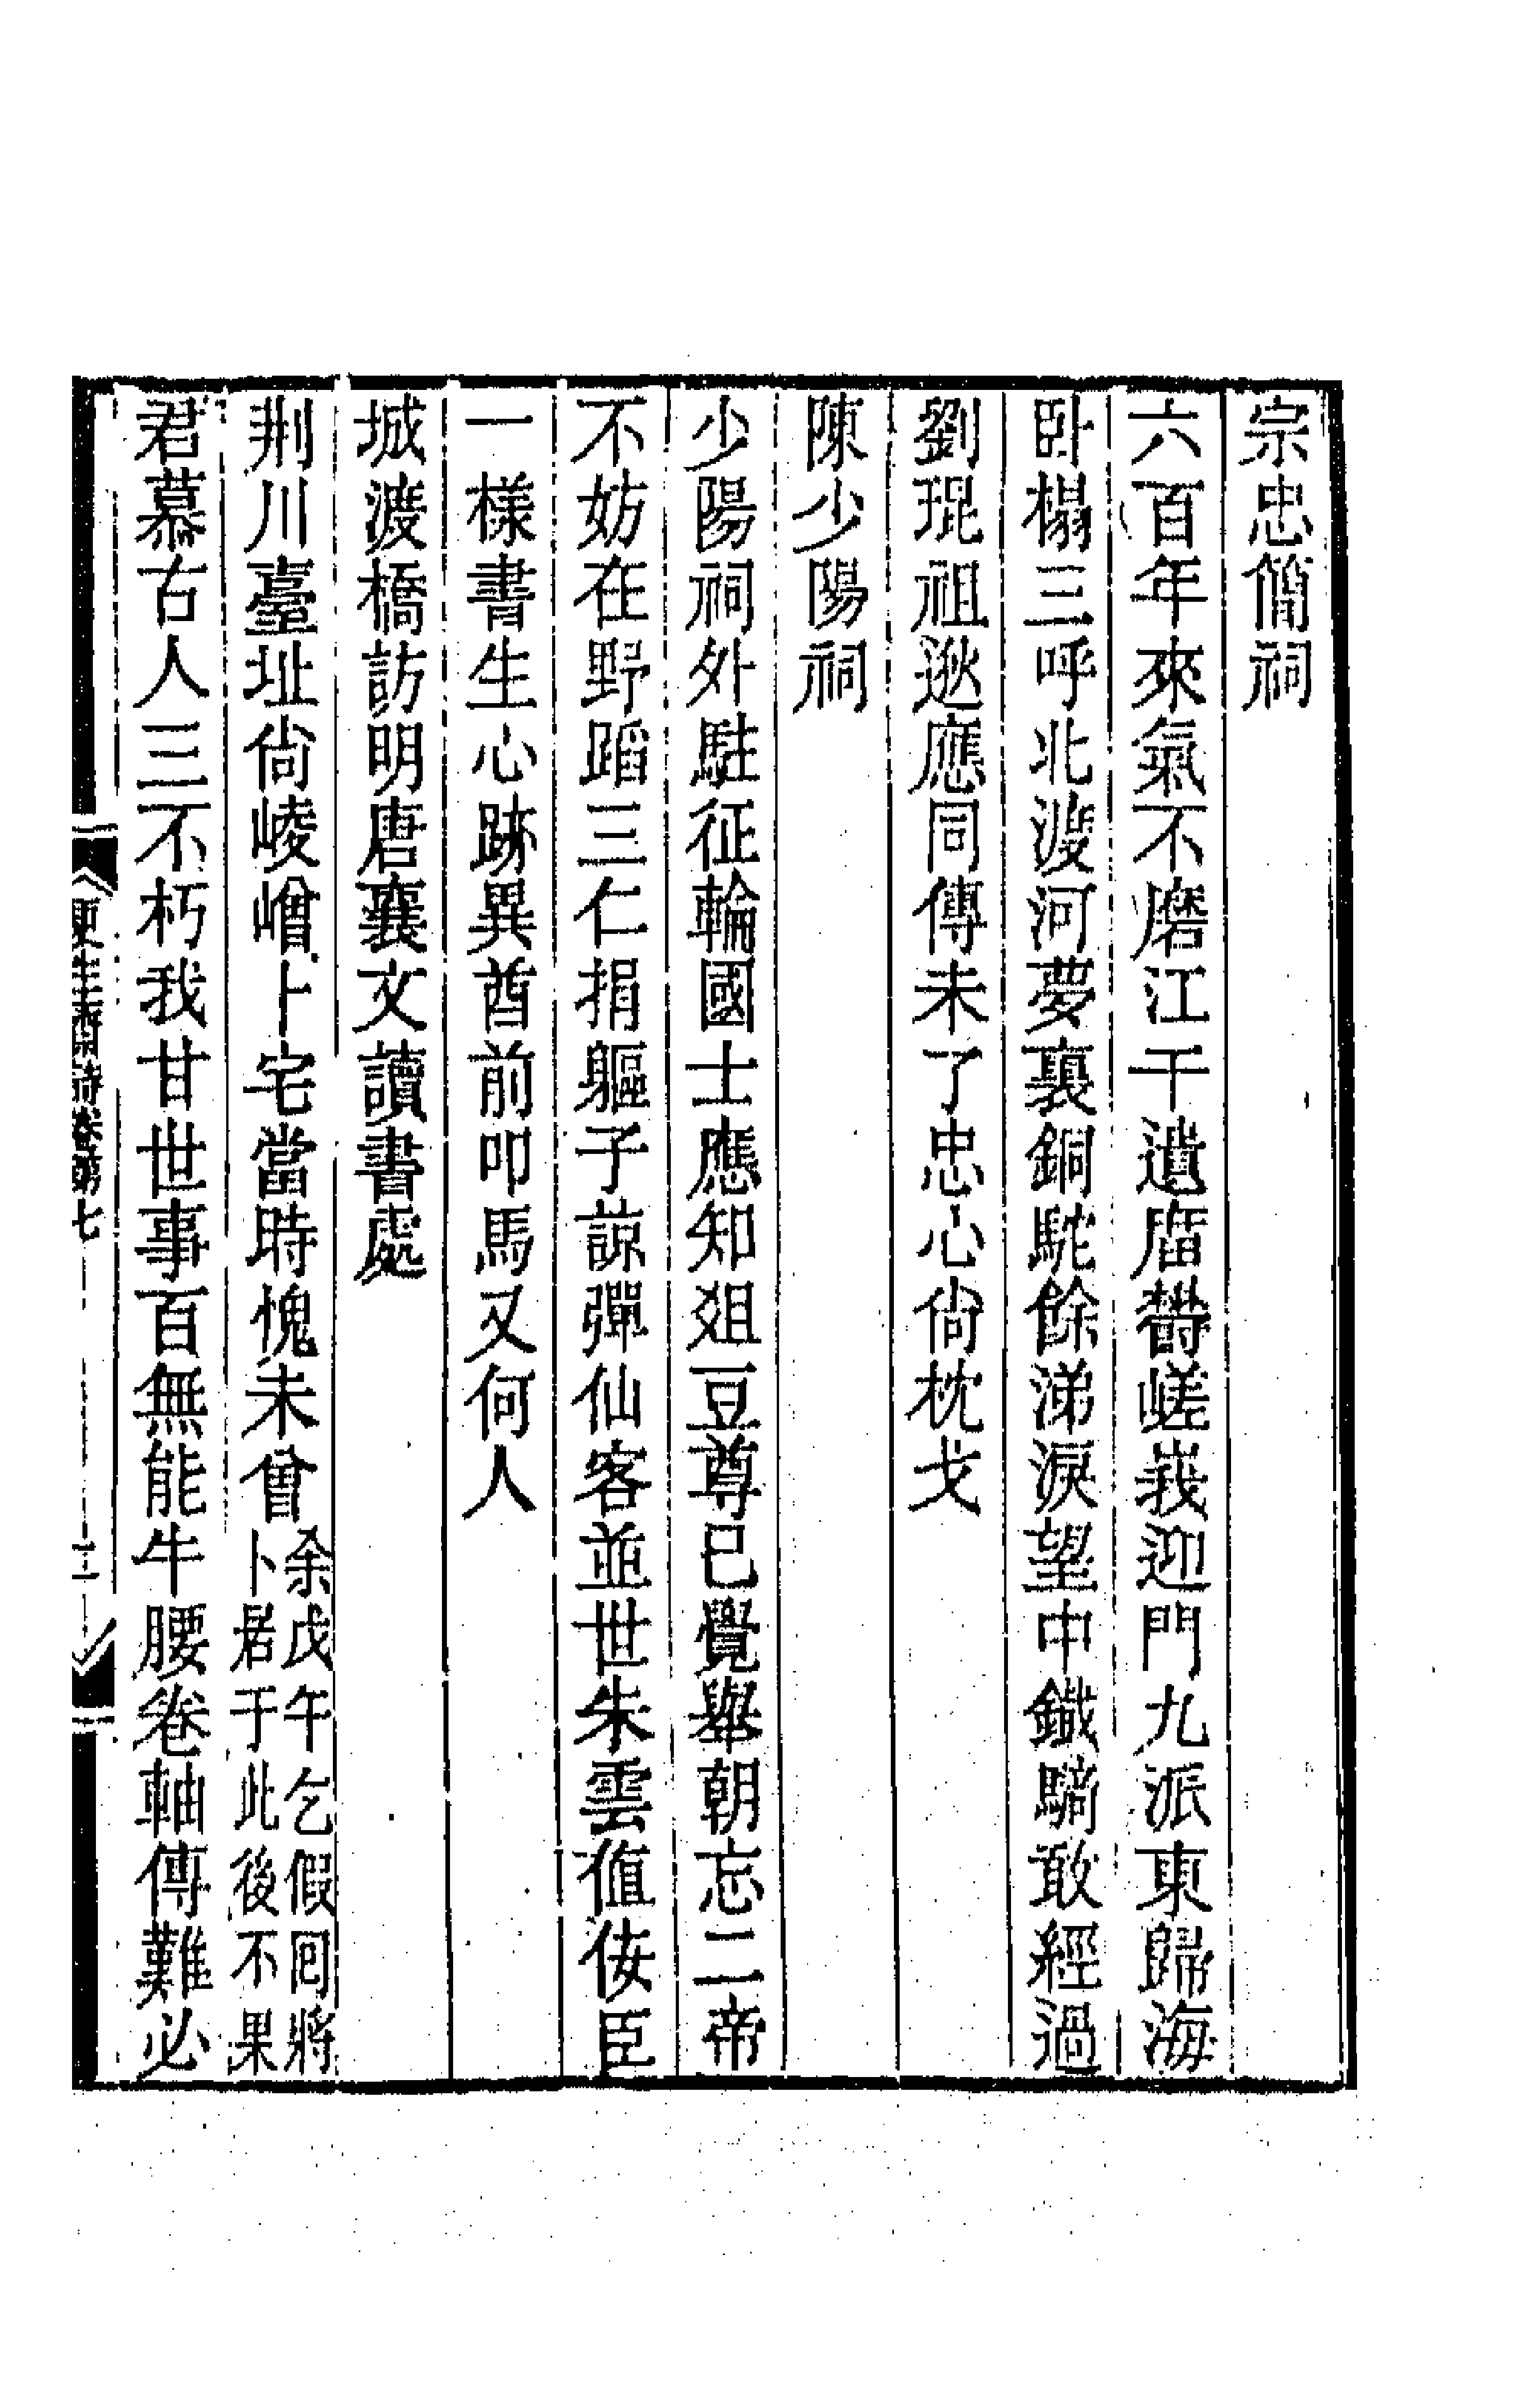 宗忠簡祠
六百年來氣不磨江干遺庿欝嵯峩迎門九派東歸海
卧榻三呼北渡河夢裏銅駝餘涕淚望中鐵騎敢經過
劉琨祖逖應同傳未了忠心尙枕戈
陳少陽祠
少陽祠外駐征輪國士應知俎豆尊已覺舉朝忘二帝
不妨在野蹈三仁捐軀子諒彈仙客並世朱雲值佞臣
一樣書生心跡異酋前叩馬又何人
城渡橋訪明唐襄文讀書處
荆川臺址尙崚嶒卜宅當時愧未曾
余戊午乞假囘將
卜居于此後不果
君慕古人三不朽我甘世事百無能牛腰卷軸傳難必
更生齋詩卷第七